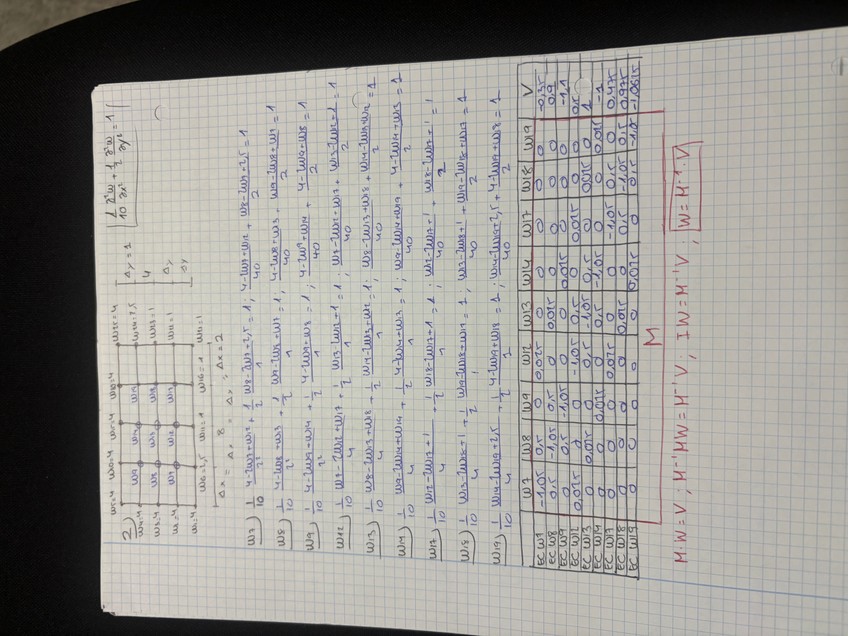 2)
1/10 ∂²w/∂x² + 1/2 ∂²w/∂y² = 1
w5=4 w10=4 w15=4 w20=4 w25=4
w4=4 w9 w14 w19 w24=2,5
w3=4 w8 w13 w18 w23=1
w2=4 w7 w12 w17 w22=1
w1=4 w6=2,5 w11=1 w16=1 w21=1
Δx = Δx = Δx = Δx = 2
8
Δy = 1
4
Δy
Δy
w7) 1/10 (4-2w7+w12)/2² + 1/2 (w8-2w7+2,5)/1 = 1; (4-2w7+w12)/40 + (w8-2w7+2,5)/2 = 1
w8) 1/10 (4-2w8+w13)/2² + 1/2 (w9-2w8+w7)/1 = 1; (4-2w8+w13)/40 + (w9-2w8+w7)/2 = 1
w9) 1/10 (4-2w9+w14)/2² + 1/2 (4-2w9+w8)/1 = 1; (4-2w9+w14)/40 + (4-2w9+w8)/2 = 1
w12) 1/10 (w7-2w12+w17)/4 + 1/2 (w13-2w12+1)/1 = 1; (w7-2w12+w17)/40 + (w13-2w12+1)/2 = 1
w13) 1/10 (w8-2w13+w18)/4 + 1/2 (w14-2w13+w12)/1 = 1; (w8-2w13+w18)/40 + (w14-2w13+w12)/2 = 1
w14) 1/10 (w9-2w14+w19)/4 + 1/2 (4-2w14+w13)/1 = 1; (w9-2w14+w19)/40 + (4-2w14+w13)/2 = 1
w17) 1/10 (w12-2w17+1)/4 + 1/2 (w18-2w17+1)/1 = 1; (w12-2w17+1)/40 + (w18-2w17+1)/2 = 1
w18) 1/10 (w13-2w18+1)/4 + 1/2 (w19-2w18+w17)/1 = 1; (w13-2w18+1)/40 + (w19-2w18+w17)/2 = 1
w19) 1/10 (w14-2w19+2,5)/4 + 1/2 (4-2w19+w18)/1 = 1; (w14-2w19+2,5)/40 + (4-2w19+w18)/2 = 1
W7 W8 W9 W12 W13 W14 W17 W18 W19 V
EC W7 -1,05 0,5 0 0,025 0 0 0 0 0 -0,35
EC W8 0,5 -1,05 0,5 0 0,025 0 0 0 0 0,9
EC W9 0 0,5 -1,05 0 0 0,025 0 0 0 -1,1
EC W12 0,025 0 0 -1,05 0,5 0 0,025 0 0 0,5
EC W13 0 0,025 0 0,5 -1,05 0,5 0 0,025 0 1
EC W14 0 0 0,025 0 0,5 -1,05 0 0 0,025 -1
EC W17 0 0 0 0,025 0 0 -1,05 0,5 0 0,475
EC W18 0 0 0 0 0,025 0 0,5 -1,05 0,5 0,975
EC W19 0 0 0 0 0 0,025 0 0,5 -1,05 -1,0625
M
M·W=V ; M⁻¹MW=M⁻¹V ; IW=M⁻¹V ; W=M⁻¹·V